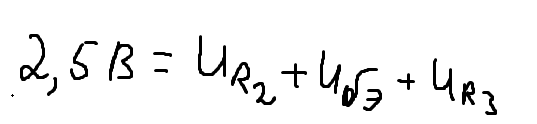 2,5В = U_R2 + U_бэ + U_R3